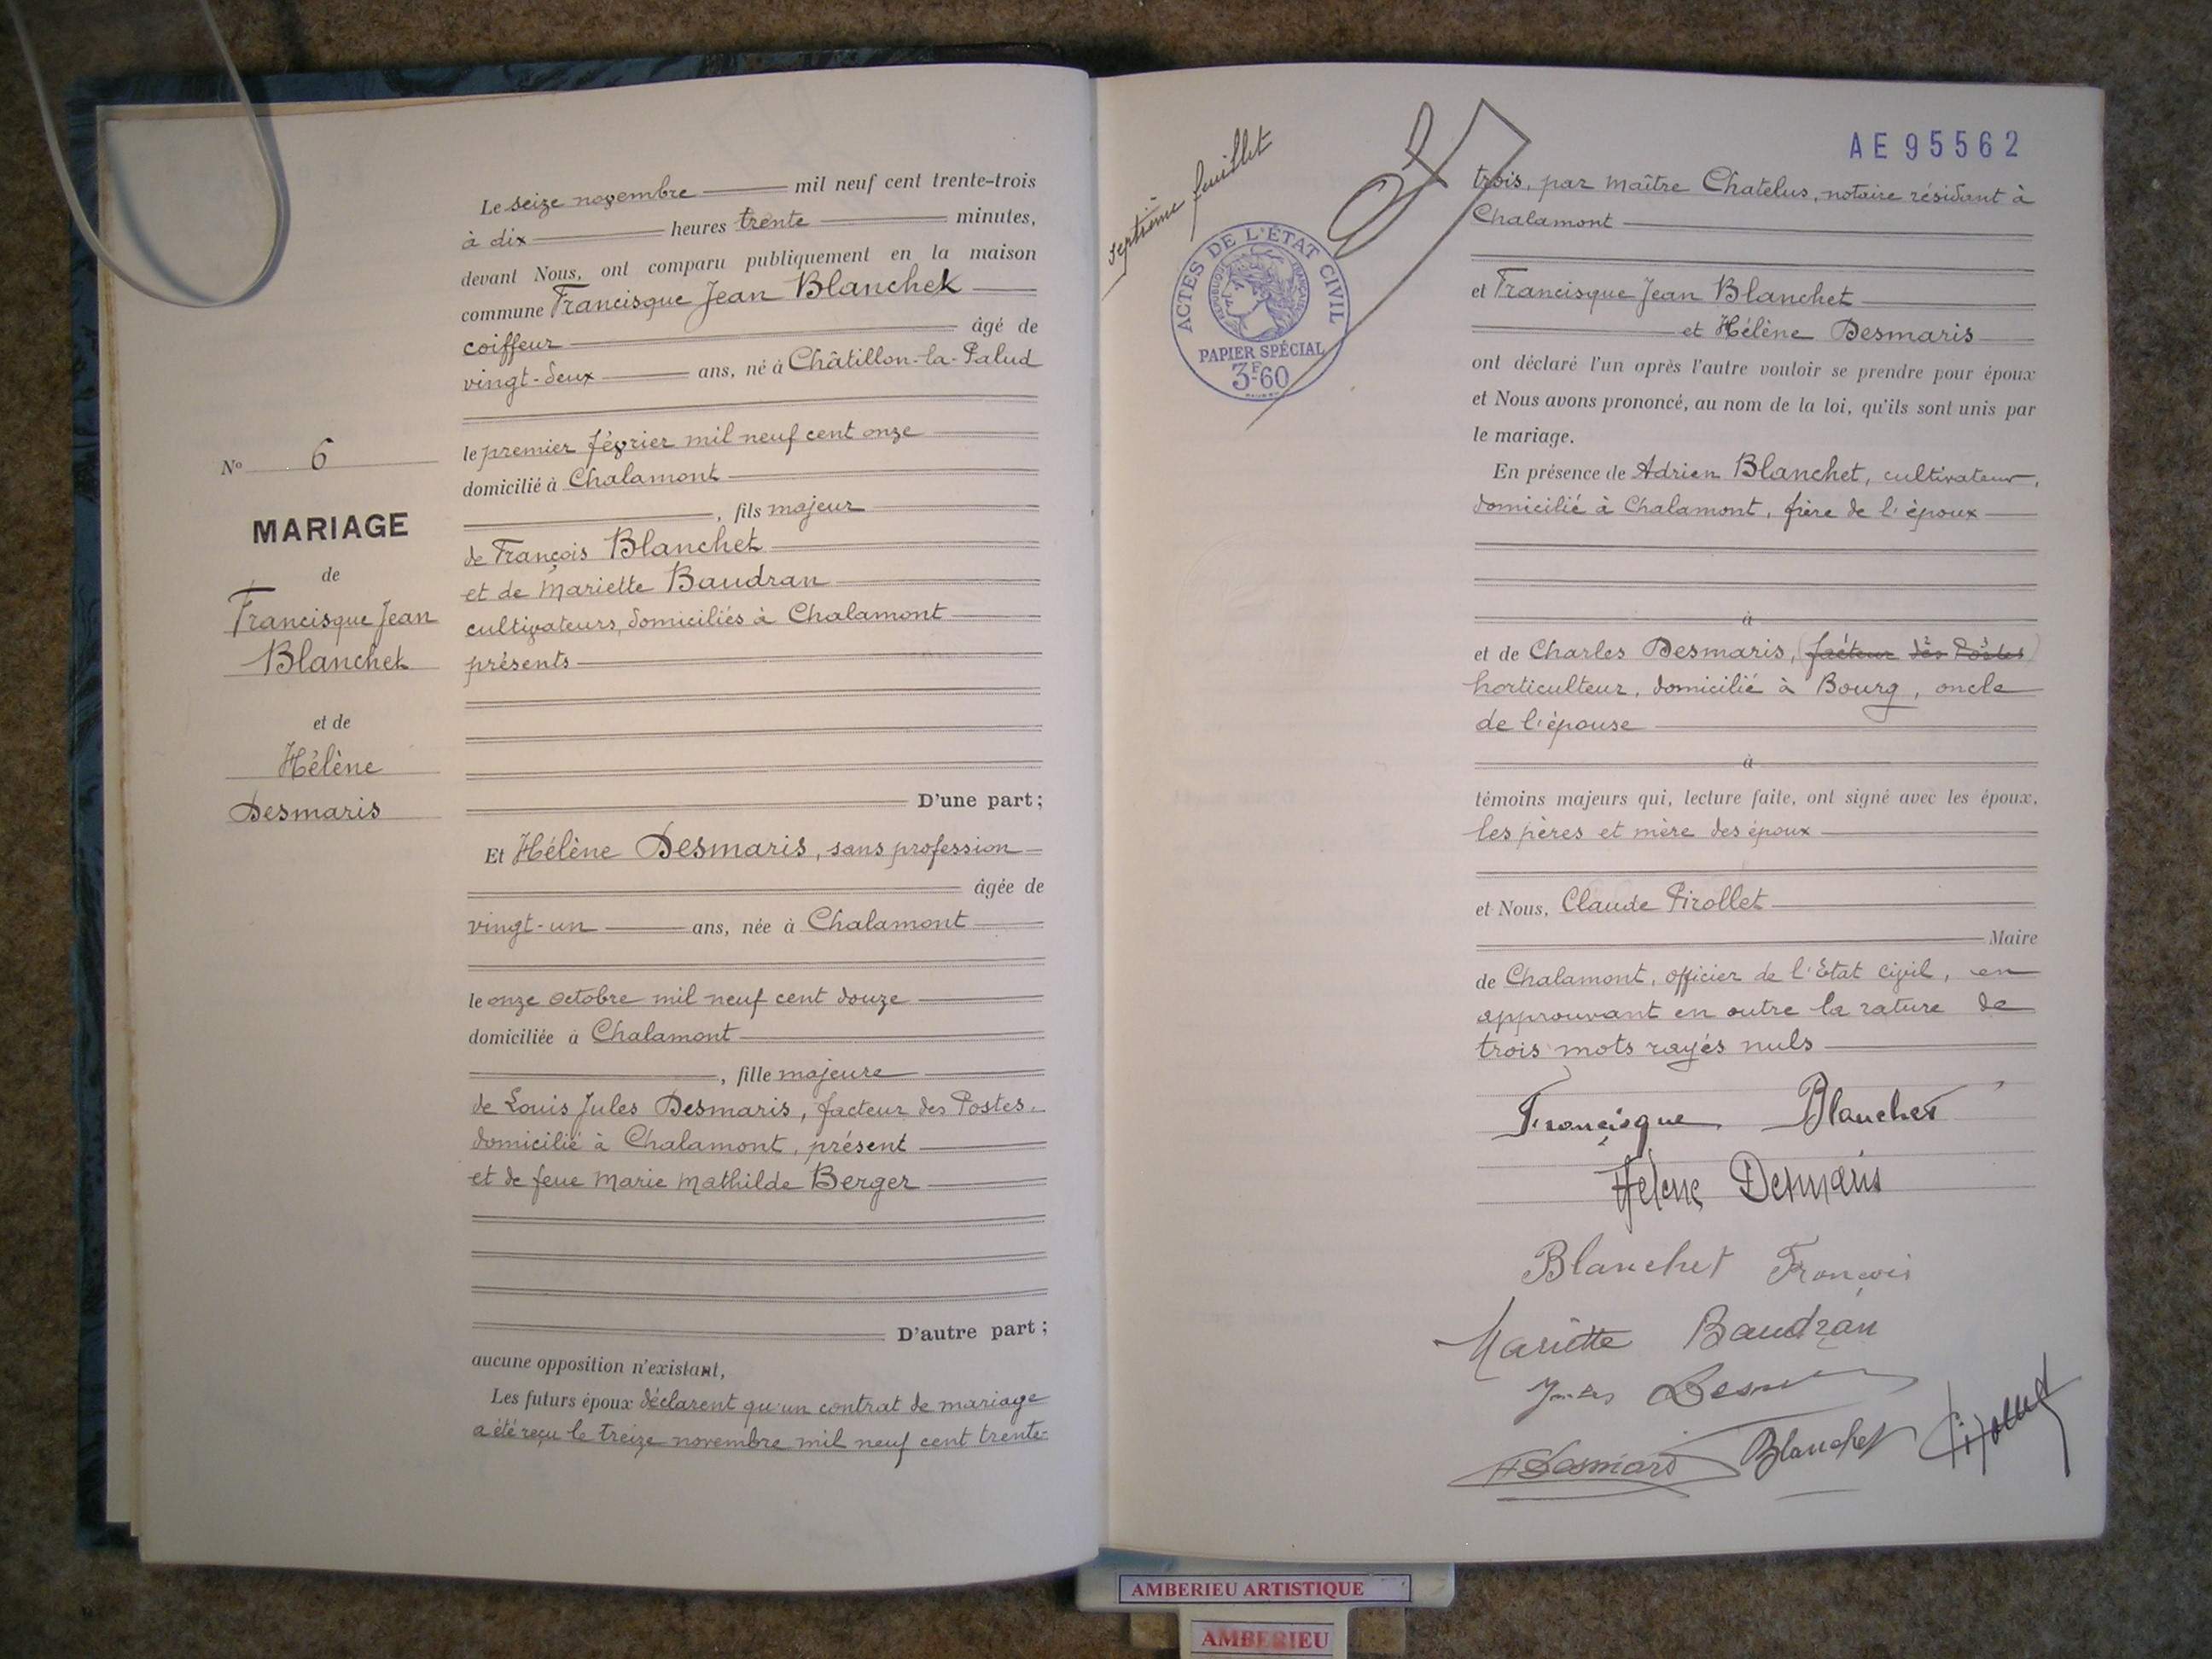 Le seize novembre mil neuf cent trente-trois
à dix heures trente minutes,
devant Nous, ont comparu publiquement en la maison
commune Francisque Jean Blanchet
coiffeur âgé de
vingt-deux ans, né à Châtillon-la-Palud
le premier février mil neuf cent onze
domicilié à Chalamont
, fils majeur
de François Blanchet
et de Mariette Baudran
cultivateurs, domiciliés à Chalamont
présents
D'une part;
Et Hélène Desmaris, sans profession
âgée de
vingt-un ans, née à Chalamont
le onze octobre mil neuf cent douze
domiciliée à Chalamont
, fille majeure
de Louis Jules Desmaris, facteur des Postes,
domicilié à Chalamont, présent
et de feue Marie Mathilde Berger
D'autre part;
aucune opposition n'existant,
Les futurs époux déclarent qu'un contrat de mariage
a été reçu le treize novembre mil neuf cent trente-
No 6
MARIAGE
de
Francisque Jean
Blanchet
et de
Hélène
Desmaris
septième feuillet
ACTES DE L'ÉTAT CIVIL
RÉPUBLIQUE FRANÇAISE
PAPIER SPÉCIAL
3F60
AE 95562
trois, par maître Chatelus, notaire résidant à
Chalamont
et Francisque Jean Blanchet
et Hélène Desmaris
ont déclaré l'un après l'autre vouloir se prendre pour époux
et Nous avons prononcé, au nom de la loi, qu'ils sont unis par
le mariage.
En présence de Adrien Blanchet, cultivateur,
domicilié à Chalamont, frère de l'époux
à
et de Charles Desmaris, (facteur des Postes)
horticulteur, domicilié à Bourg, oncle
de l'épouse
à
témoins majeurs qui, lecture faite, ont signé avec les époux,
les pères et mère des époux
et Nous, Claude Pirollet
Maire
de Chalamont, officier de l'Etat civil, en
approuvant en outre la rature de
trois mots rayés nuls
Francisque Blanchet
Hélène Desmaris
Blanchet François
Mariette Baudran
Desmaris
Blanchet
Pirollet
AMBERIEU ARTISTIQUE
AMBERIEU